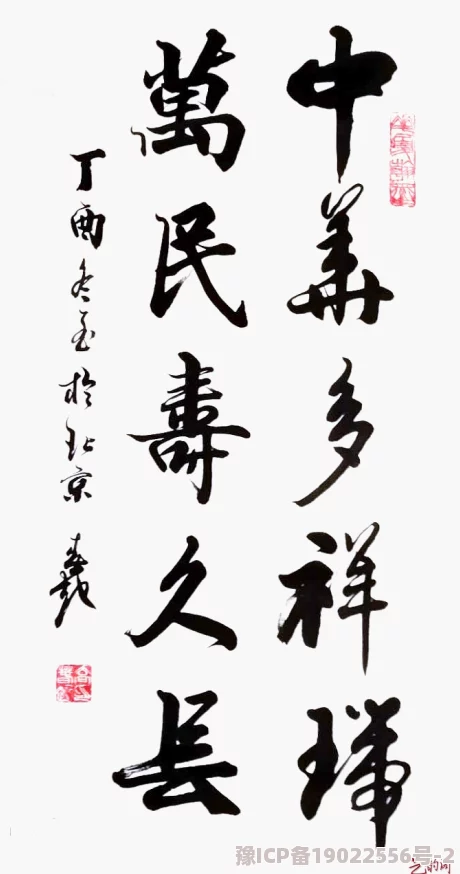 中華多祥瑞
萬民壽久長
丁酉冬至於北京
豫ICP备19022556号-2